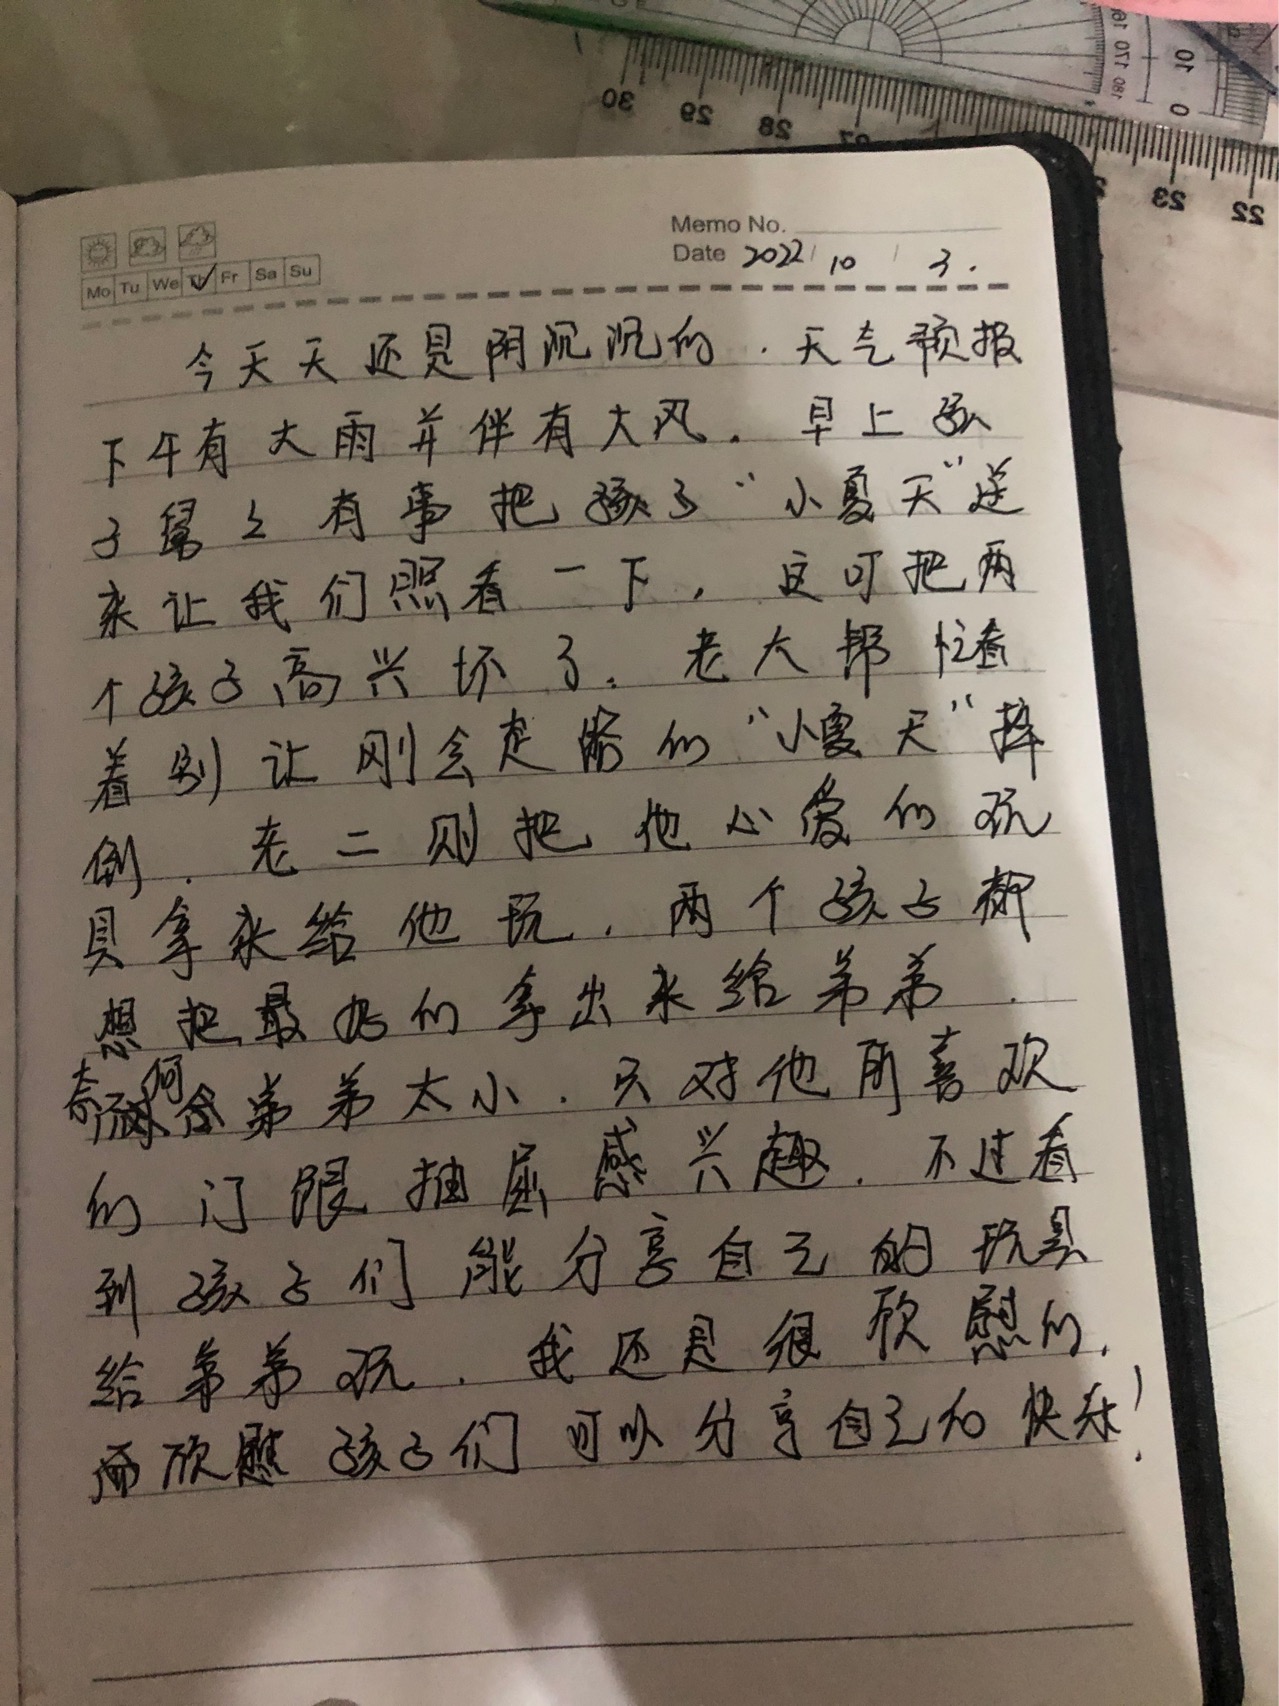 30 29 28 27 23 22
10 0
180 170 160
Memo No.
Date 2022/10/3.
Mo Tu We Th Fr Sa Su
今天天还是阴沉沉的．天气预报
下午有大雨并伴有大风．早上孩
子舅舅有事把孩子“小夏天”送
来让我们照看一下，这可把两
个孩子高兴坏了．老大帮忙看
着别让刚会走路的“小夏天”摔
倒．老二则把他心爱的玩
具拿来给他玩，两个孩子都
想把最好的拿出来给弟弟．
奈何
弟弟太小．只对他所喜欢
的门跟抽屉感兴趣．不过看
到孩子们能分享自己的玩具
给弟弟玩．我还是很欣慰的，
而欣慰孩子们可以分享自己的快乐！